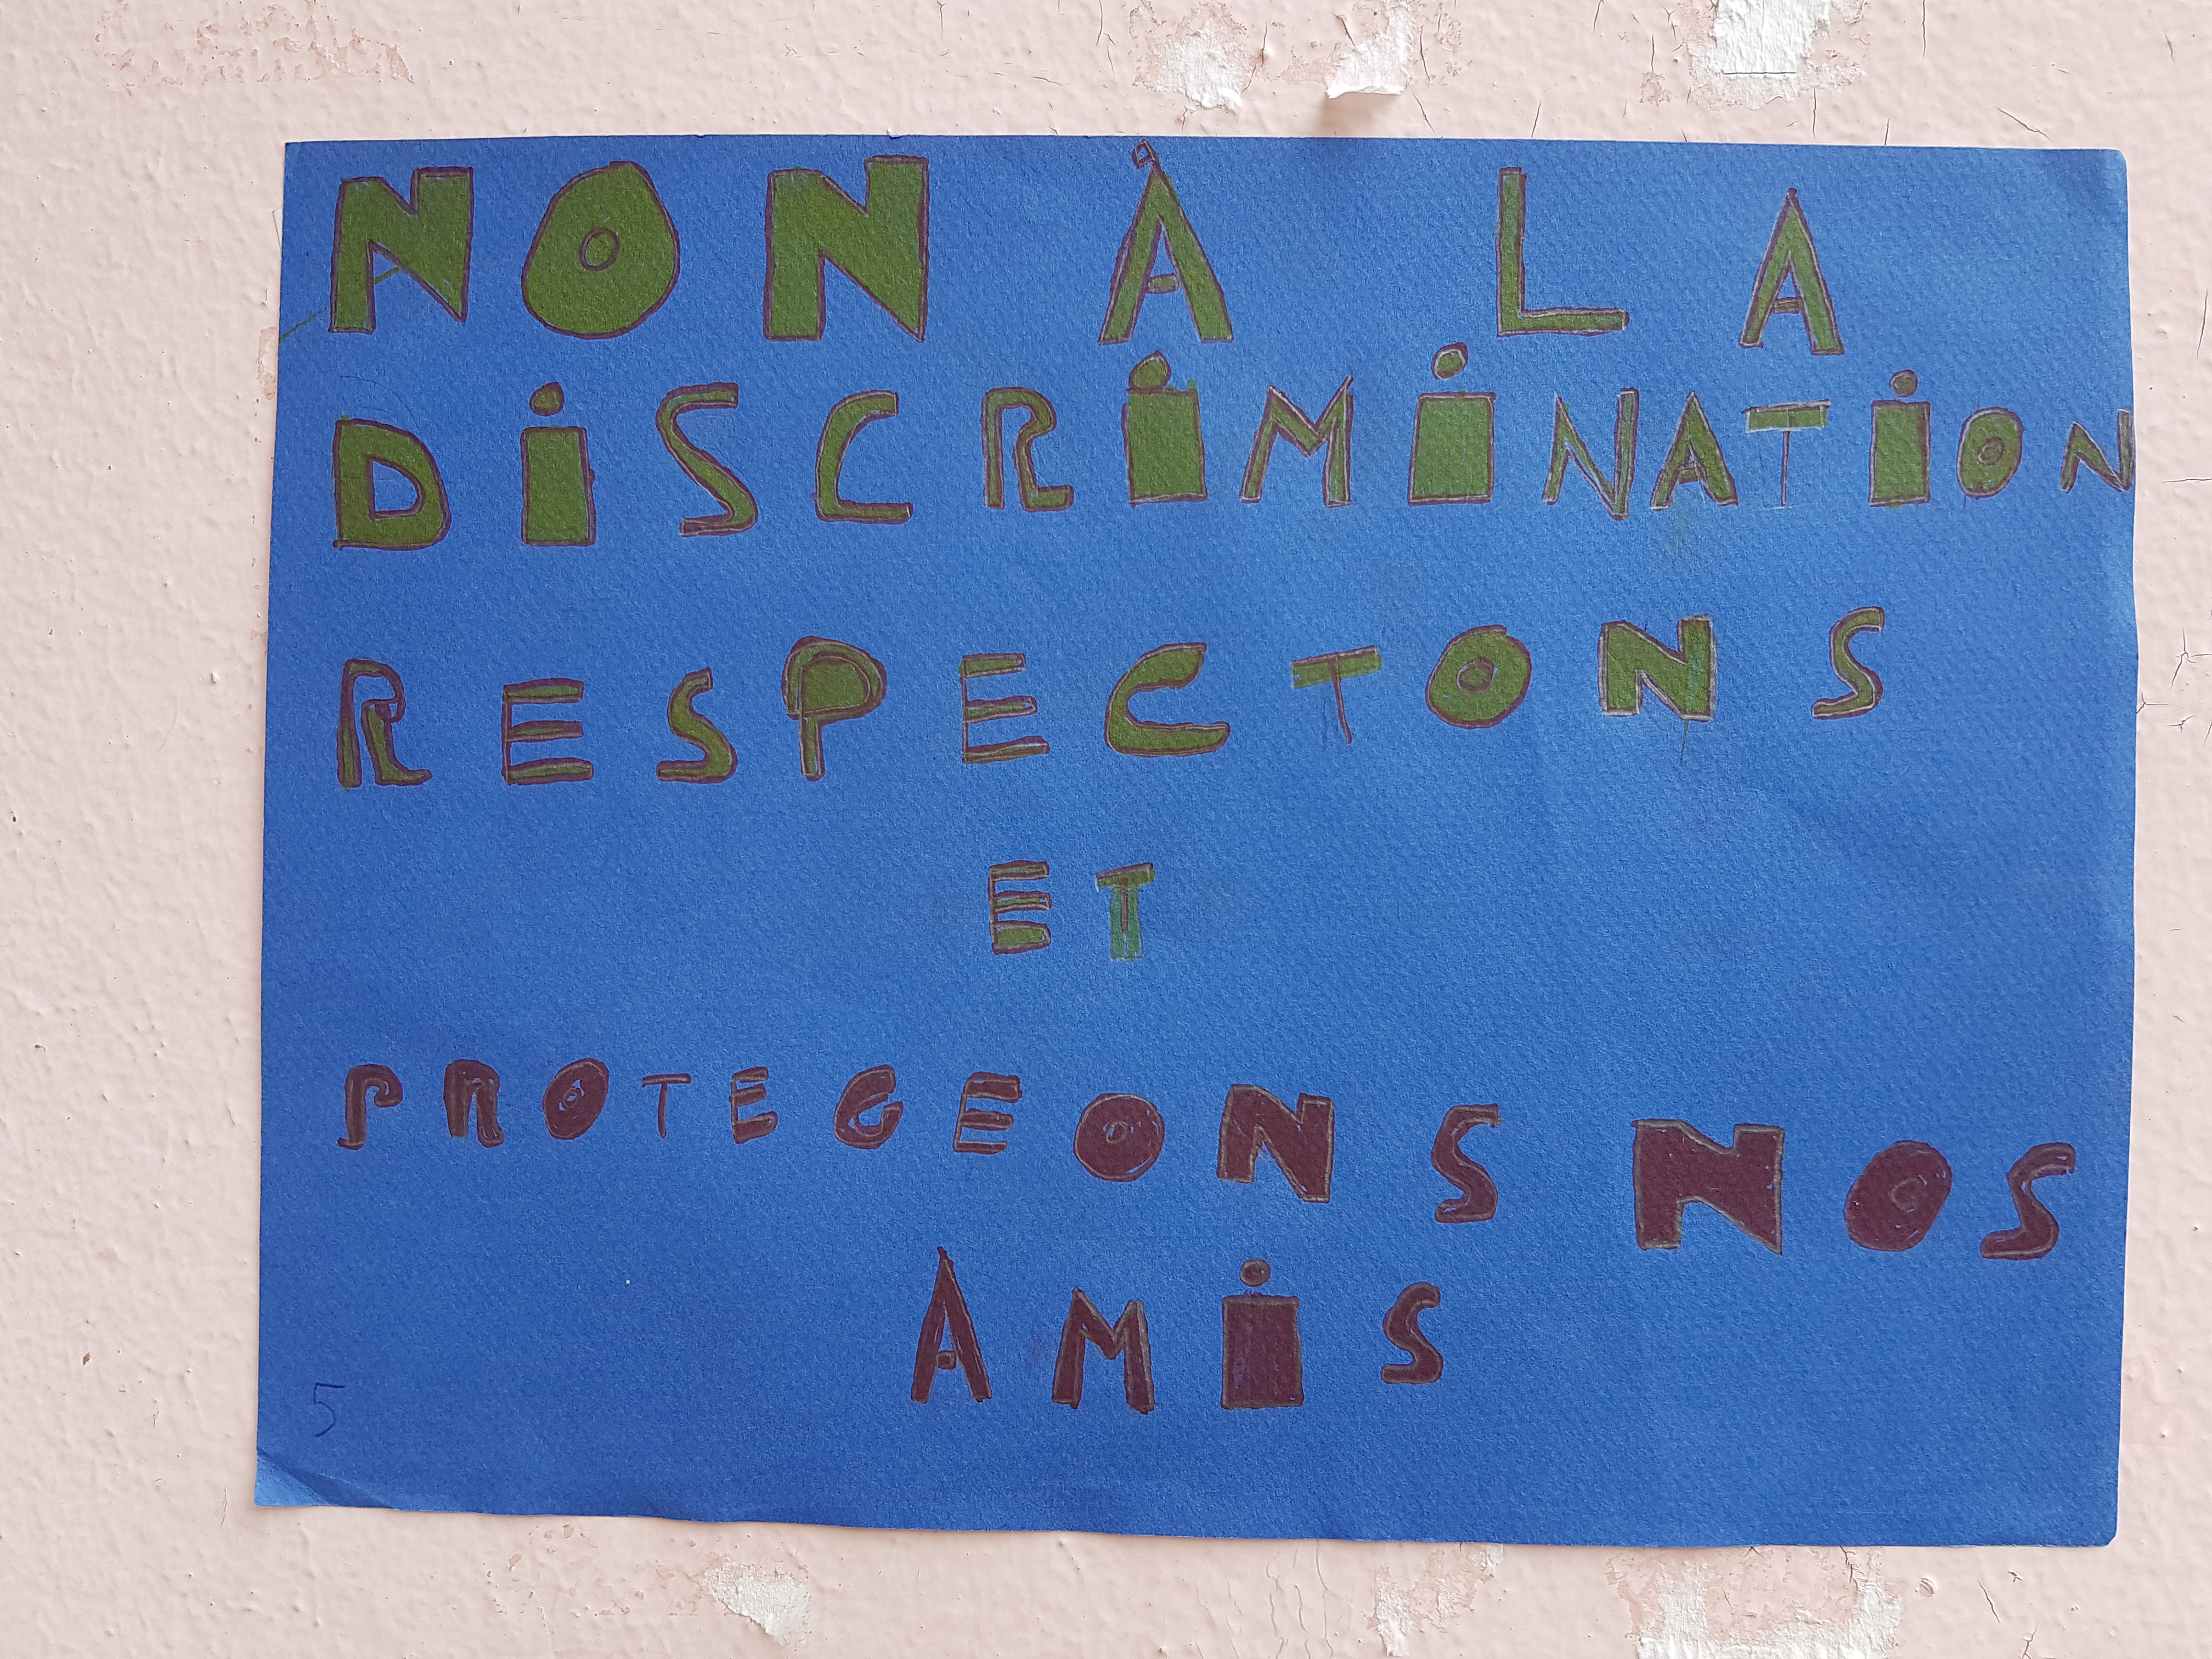 NON À LA
DiSCRiMiNATiON
RESPECTONS
ET
PROTEGEONS NOS
AMiS
5